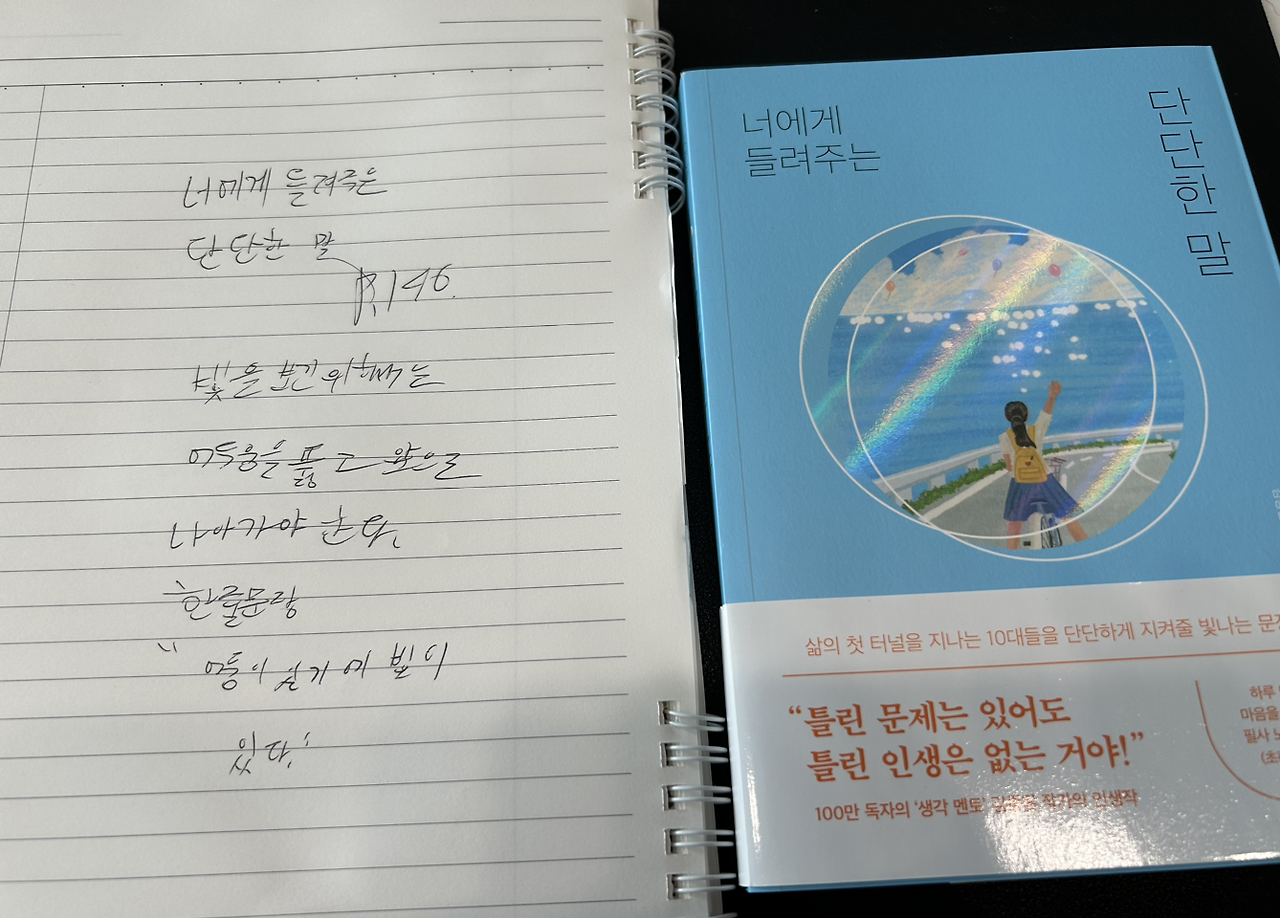 너에게 들려주는
단단한 말
P.146.
빛을 보긴 위해서는
어두움을 뚫고 앞으로
나아가야 한다.
한줄문장
"어둠이 있기에 빛이
있다."
너에게
들려주는
단단한 말
삶의 첫 터널을 지나는 10대들을 단단하게 지켜줄 빛나는 문장
"틀린 문제는 있어도
틀린 인생은 없는 거야!"
100만 독자의 '생각 멘토' 작가의 인생작
하루
마음을
필사 노